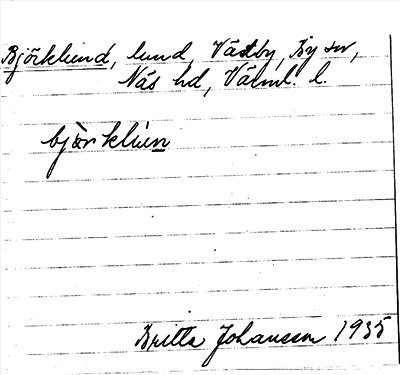 Björklund, lund, Västby, By sn,
Näs hd, Värml. l.
björklun
Britta Johansson 1935